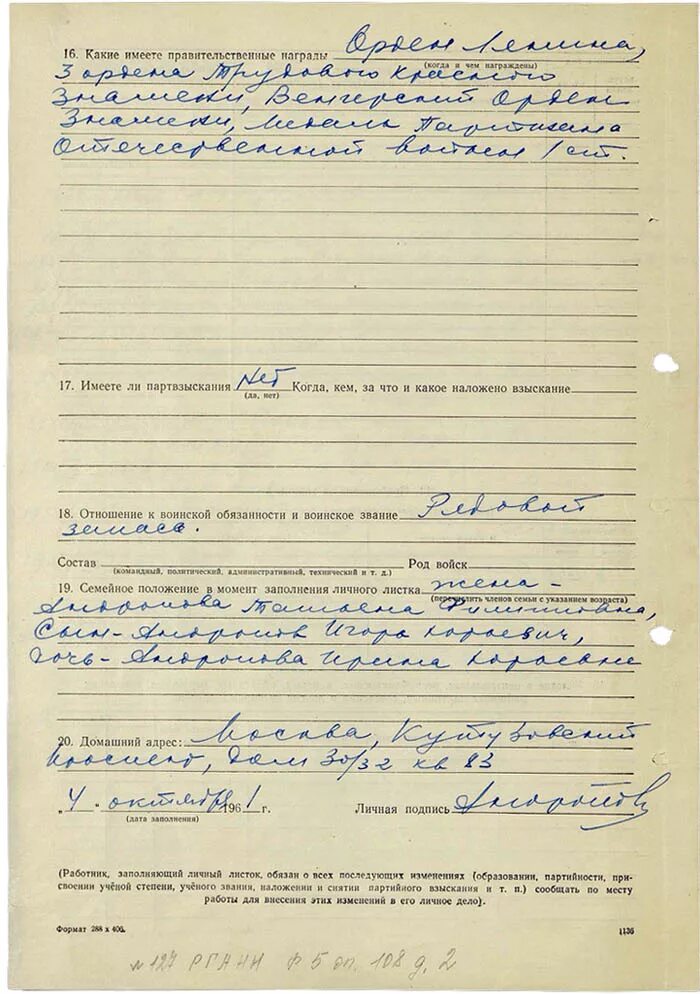 16. Какие имеете правительственные награды Орден Ленина,
(когда и чем награждены)
3 ордена Трудового Красного
Знамени, Венгерский Орден
Знамени, Медаль Партизана
Отечественной войны 1 ст.
17. Имеете ли партвзыскания нет Когда, кем, за что и какое наложено взыскание
(да, нет)
18. Отношение к воинской обязанности и воинское звание Рядовой
запаса.
Состав Род войск
(командный, политический, административный, технический и т. д.)
19. Семейное положение в момент заполнения личного листка жена -
(перечислить членов семьи с указанием возраста)
Андропова Татьяна Филипповна,
Сын - Андропов Игорь Юрьевич,
дочь - Андропова Ирина Юрьевна
20. Домашний адрес: Москва, Кутузовский
проспект, дом 30/32 кв 83
„4" октября 1961 г. Личная подпись Андропов
(дата заполнения)
(Работник, заполняющий личный листок, обязан о всех последующих изменениях (образовании, партийности, при-
своении учёной степени, учёного звания, наложении и снятии партийного взыскания и т. п.) сообщать по месту
работы для внесения этих изменений в его личное дело).
Формат 288 х 406. 1136
№ 127 РГАНИ Ф 5 оп. 108 д. 2